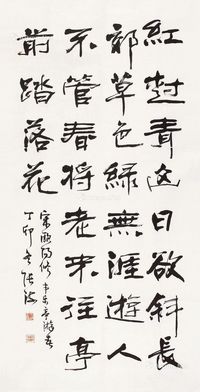 紅樹青山日欲斜長
郊草色綠無涯遊人
不管春將老来往亭
前踏落花
宋歐陽修丰乐亭游春
丁卯冬張海